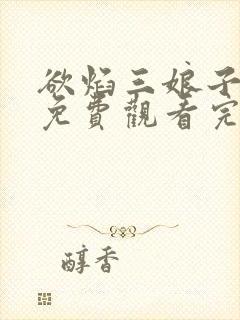 欲焰三娘子
免費觀看完
醇香